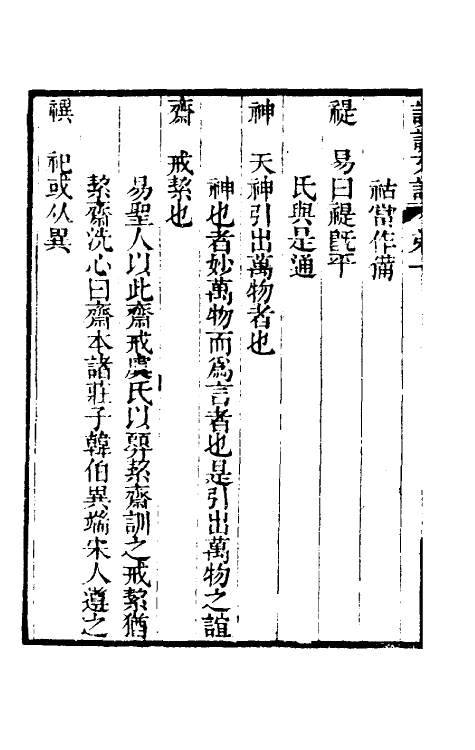 祜當作備
禔　易曰禔旣平
氏與是通
神　天神引出萬物者也
神也者妙萬物而爲言者也是引出萬物之誼
齋　戒絜也
易聖人以此齋戒虞氏以㢲絜齋訓之戒絜猶
絜齋洗心曰齋本諸莊子韓伯異端宋人遵之
禩　祀或从異